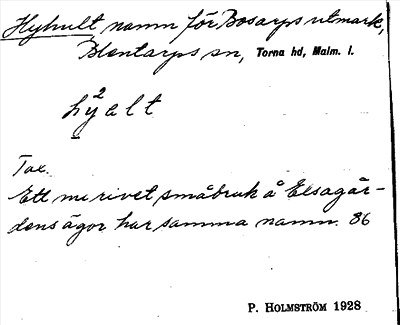 Hyhult namn för Bosarps utmark,
Blentarps sn, Torna hd, Malm. l.
2
hyalt
Tax.
Ett nu rivet småbruk å Elsagår-
dens ägor har samma namn. 86
P. HOLMSTRÖM 1928